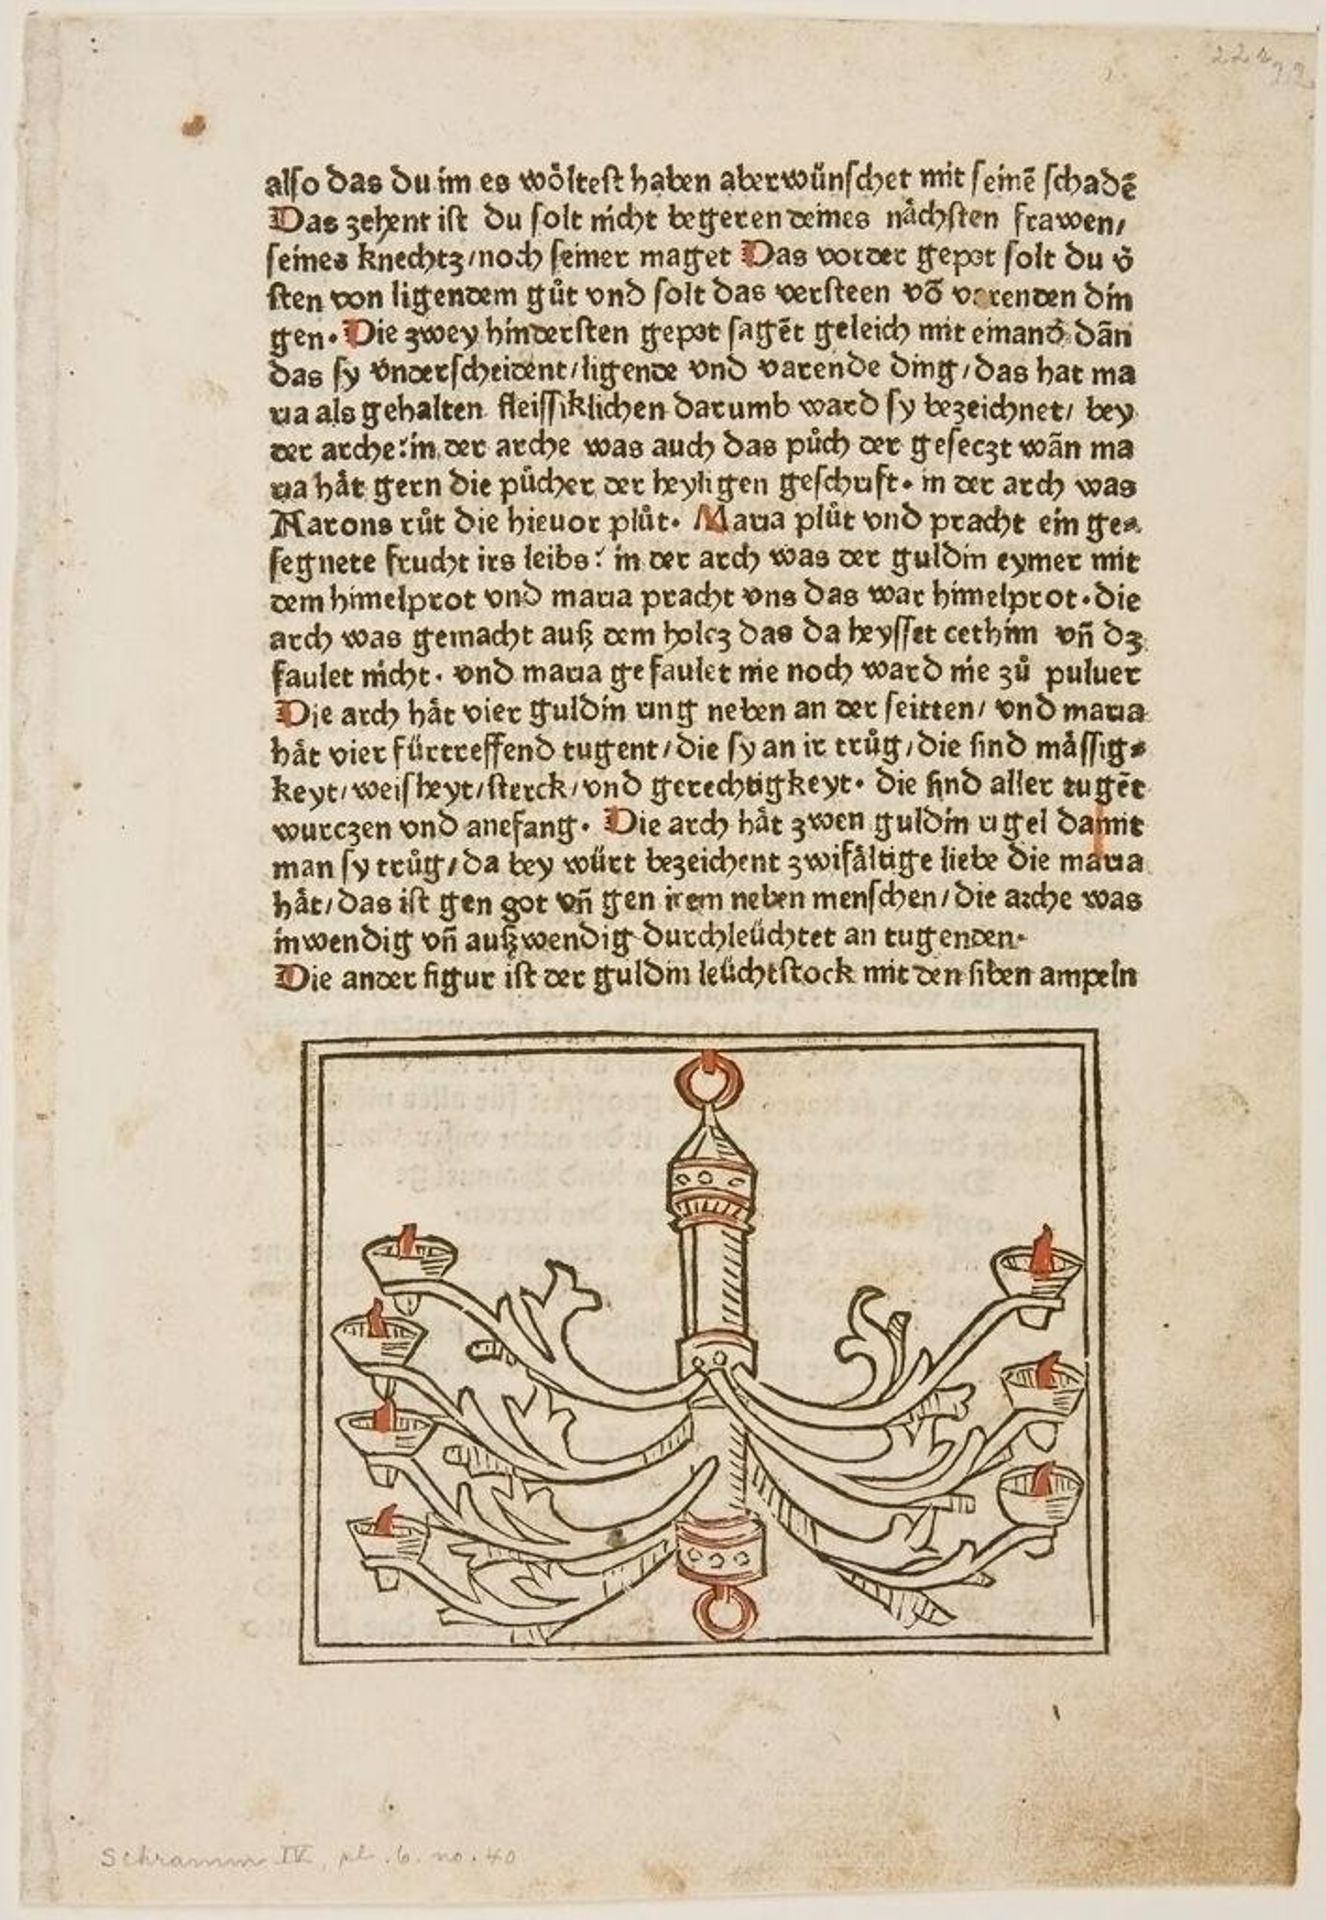 also das du im es wöltest haben aberwünschet mit seinē schadē
Das zehent ist du solt nicht begeren deines nächsten frawen/
seines knechtz/noch seiner maget Das vorder gepot solt du v̄
sten von ligendem gůt vnd solt das versteen vō varenden din
gen· Die zwey hindersten gepot sagēt geleich mit einand dān
das sy vnderscheident/ligende vnd varende ding/das hat ma
ria als gehalten fleissiklichen darumb ward sy bezeichnet/ bey
der arche: in der arche was auch das půch der geseczt wān ma
ria hät gern die půcher der heyligen geschrift· in der arch was
Aarons růt die hieuor plůt· Maria plůt vnd pracht ein ge⸗
segnete frucht irs leibs: in der arch was der guldin eymer mit
dem himelprot vnd maria pracht vns das war himelprot·die
arch was gemacht auß dem holcz das da heysset cethim vn̄ dz
faulet nicht· vnd maria gefaulet nie noch ward nie zů puluer
Die arch hät vier guldin ring neben an der seitten/ vnd maria
hät vier fürtreffend tugent/die sy an ir trůg/die sind mässig⸗
keyt/weisheyt/sterck/vnd gerechtigkeyt· die sind aller tugēt
wurczen vnd anefang· Die arch hät zwen guldin rigel damit
man sy trůg/da bey würt bezeichent zwifältige liebe die maria
hät/das ist gen got vn̄ gen irem neben menschen/die arche was
inwendig vn̄ außwendig durchleüchtet an tugenden·
Die ander figur ist der guldin leüchtstock mit den siben ampeln
Schramm IV, pl. 6. no. 40